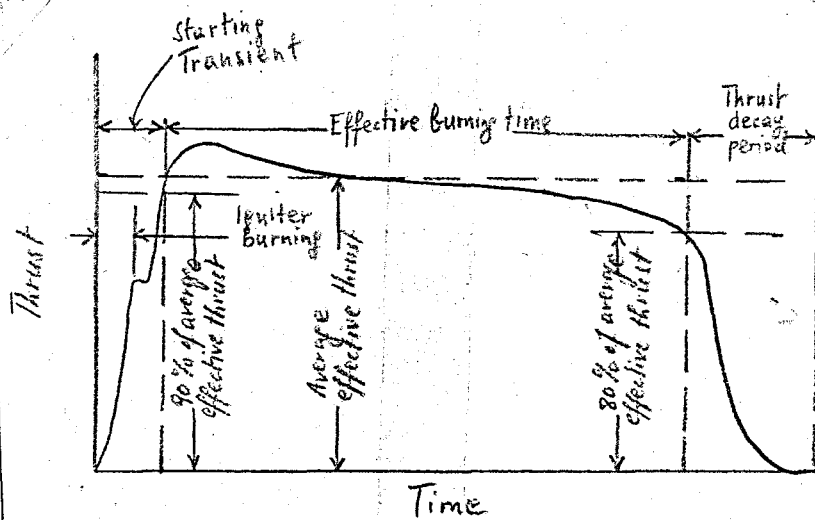 Starting
Transient
Effective burning time
Thrust
decay
period
Igniter
burning
Thrust
90% of average
effective thrust
Average
effective thrust
80% of average
effective thrust
Time